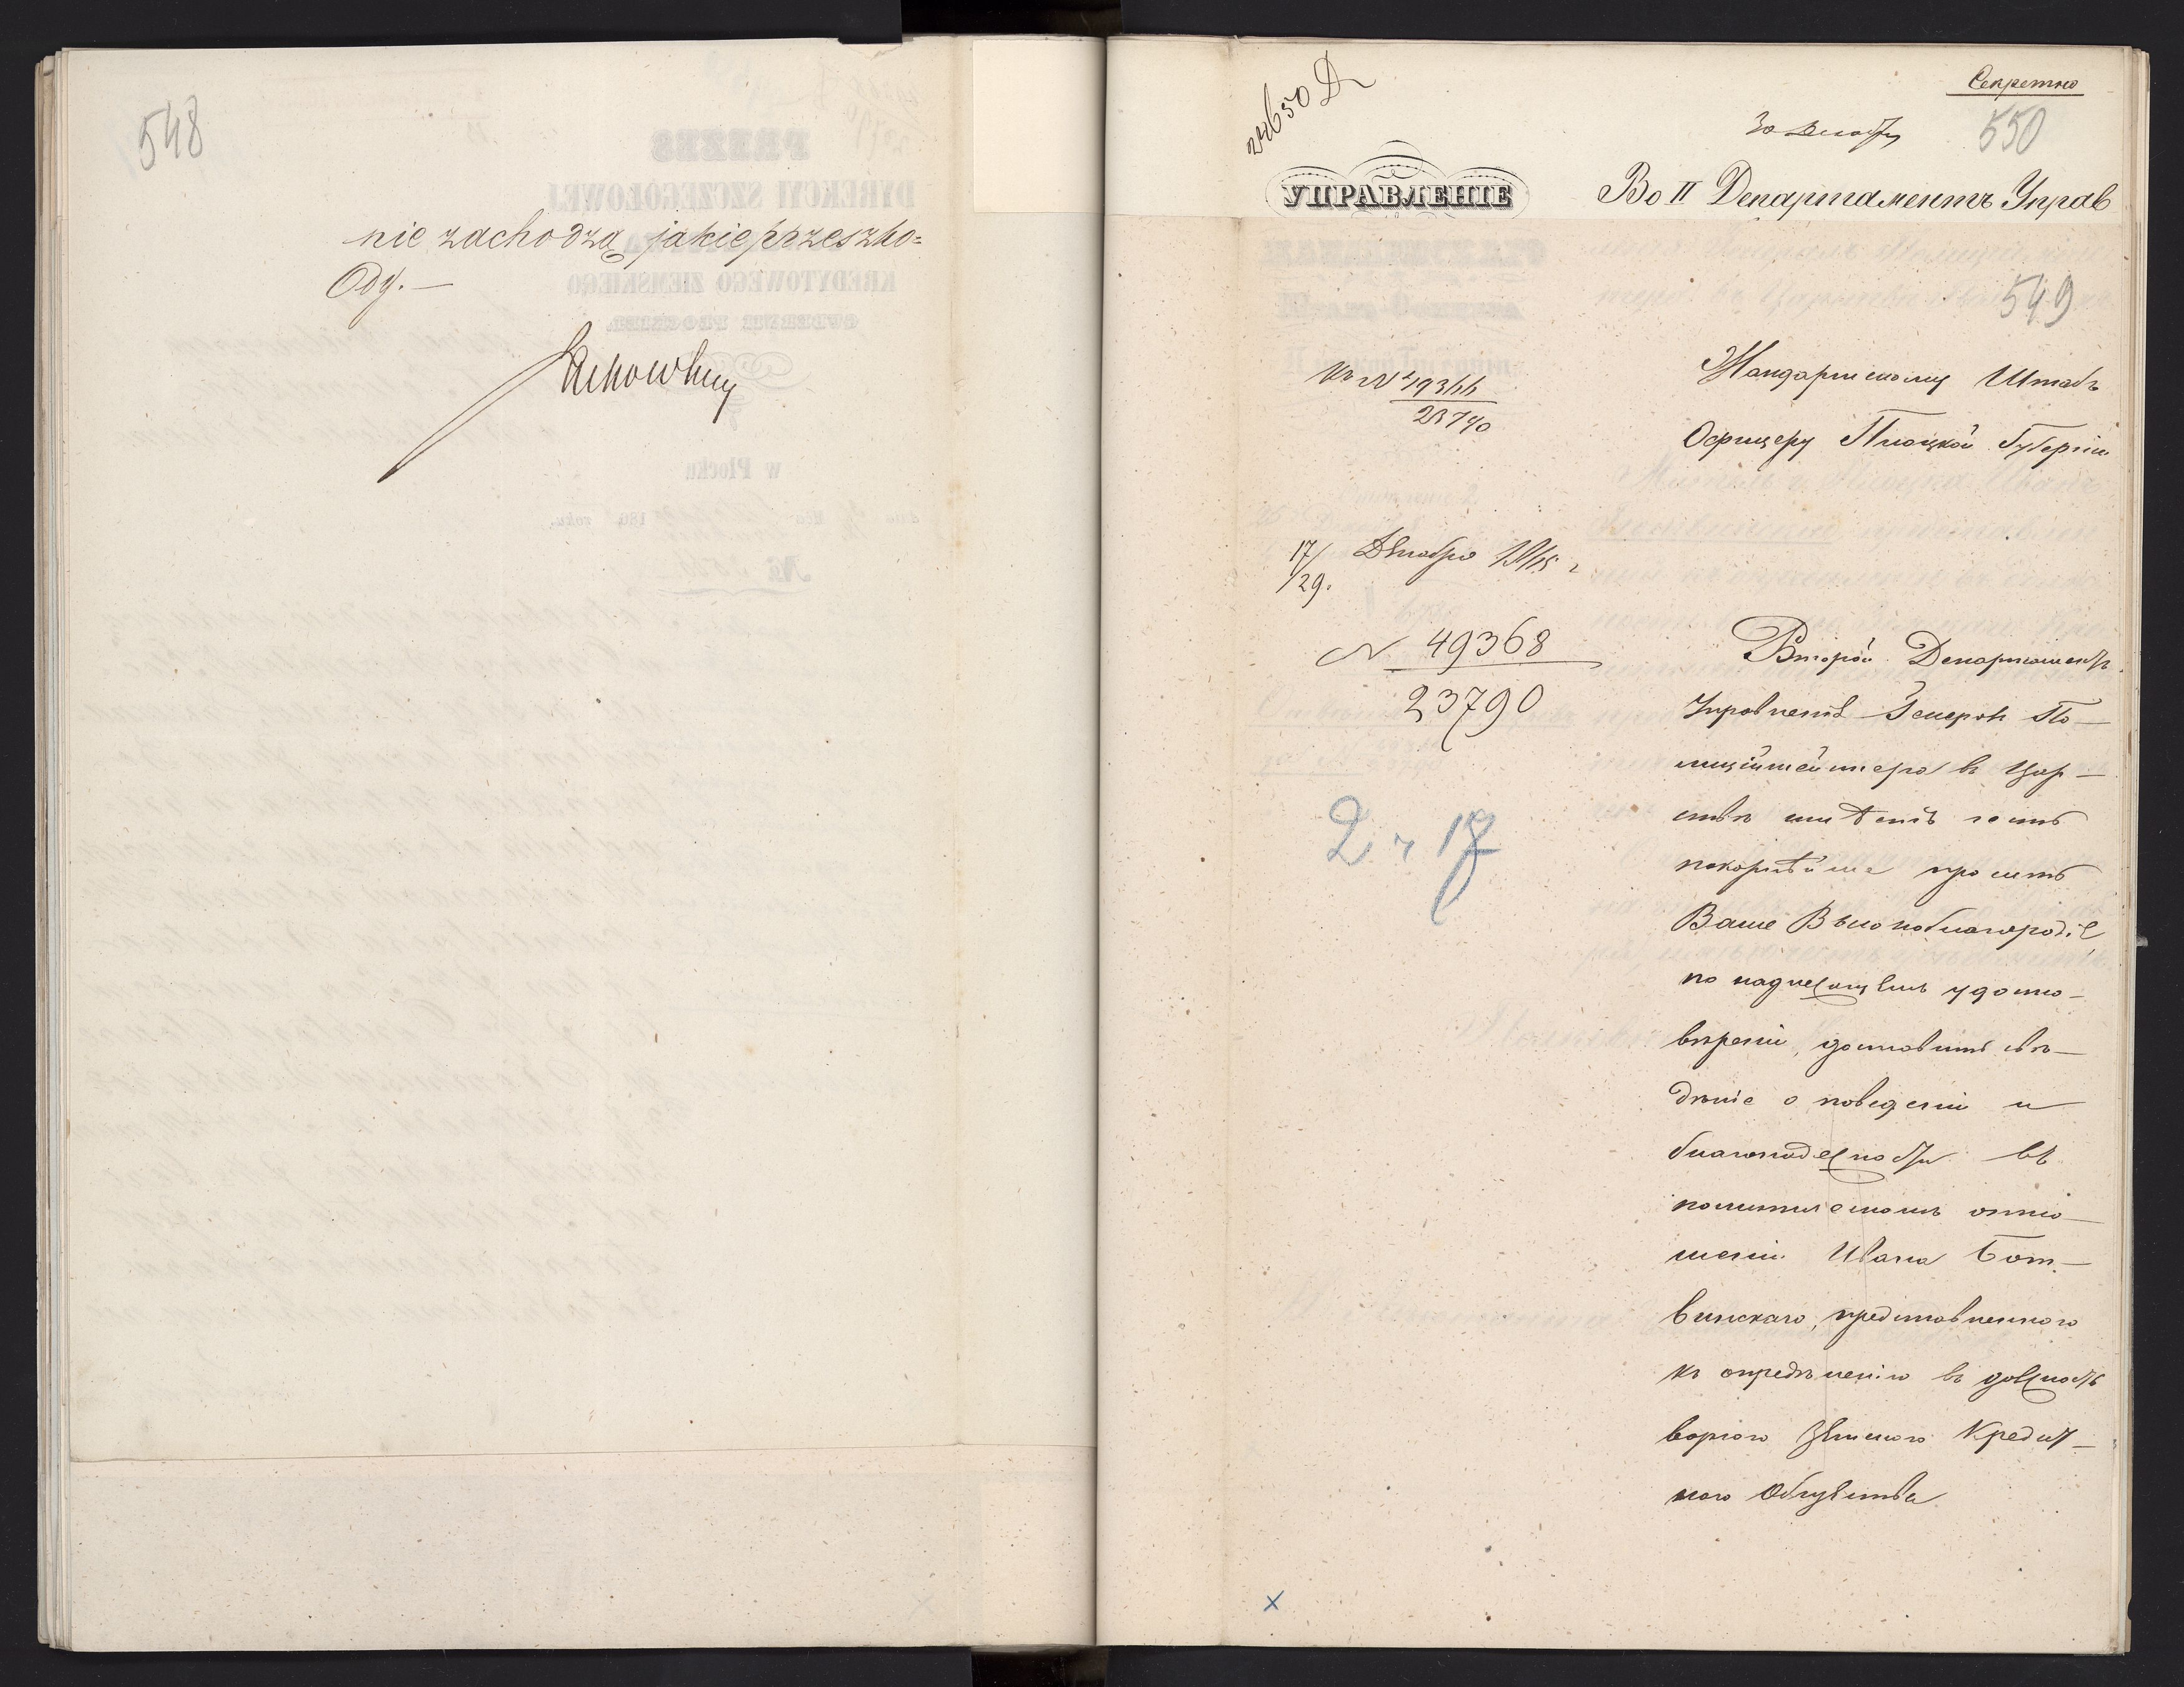 548
nie zachodzą jakie przeszko=
ody.—
24650 Д
Секретно
30 Декабр
550
УПРАВЛЕНІЕ
Во II Департаментъ Управ
549
Жандармскому Штабъ
Офицеру Плоцкой Губерніи
къ № 49344
23790
17/29. Декабря 1865 г
№ 49368
23790
Второй Департаментъ
Управленія Генералъ По–
лиціймейстера въ Цар–
ствѣ имѣетъ честь
покорнѣйше просить
Ваше Высокоблагородіе,
по надлежащемъ удосто–
вѣреніи, доставить свѣ–
дѣніе о поведеніи и
благонадежности въ
политическомъ отно–
шеніи Ивана Бот–
винскаго, представленнаго
къ опредѣленію въ должность
Земскаго Кредит–
наго Общества